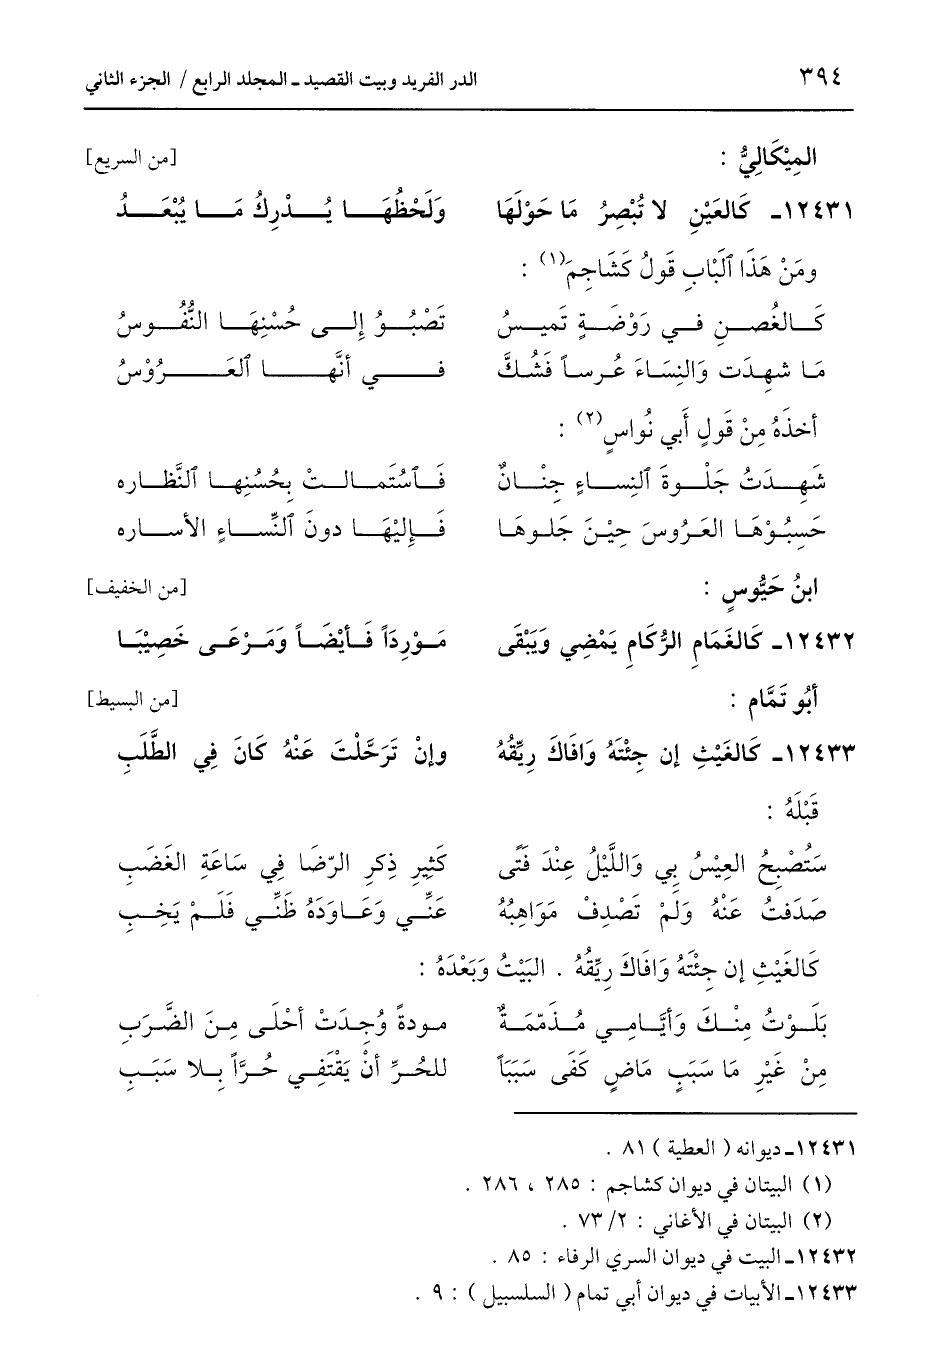 ٣٩٤ الدر الفريد وبيت القصيد ـ المجلد الرابع / الجزء الثاني
المِيْكَالِيُّ : [من السريع]
١٢٤٣١ـ كَالعَيْنِ لا تُبْصِرُ مَا حَوْلَهَا وَلَحْظُهَا يُدْرِكُ مَا يُبْعَدُ
ومَنْ هَذَا ٱلْبَابِ قَولُ كَشَاجِمَ(١) :
كَالغُصنِ في رَوْضَةٍ تَميسُ تَصْبُو إِلى حُسْنِهَا النُّفُوسُ
مَا شهِدَت وَالنِسَاءَ عُرساً فَشُكَّ في أنَّهَا ٱلعَرُوْسُ
أخذَهُ مِنْ قَولِ أَبي نُواسٍ(٢) :
شَهِدَتْ جَلْوةَ ٱلنِساءِ جِنْانٌ فَٱسْتَمالتْ بِحُسْنِها ٱلنَّظاره
حَسِبُوْهَا العَرُوسَ حِيْنَ جَلوهَا فَإِليْهَا دونَ ٱلنِّساءِ الأساره
ابنُ حَيُّوسٍ : [من الخفيف]
١٢٤٣٢ـ كَالغَمَامِ الرُّكَامِ يَمْضِي وَيَبْقَى مَوْرِدَاً فَأيْضَاً وَمَرْعَى خَصِيْبَا
أبُو تَمَّام : [من البسيط]
١٢٤٣٣ـ كَالغَيْثِ إن جِئْتَهُ وَافَاكَ رِيِّقُهُ وإنْ تَرَحَّلْتَ عَنْهُ كَانَ فِي الطَّلَبِ
قَبْلَهُ :
سَتُصْبِحُ العِيْسُ بِي وَاللَّيْلُ عِنْدَ فَتًى كَثِيرِ ذِكرِ الرّضَا فِي سَاعَةِ الغَضَبِ
صَدَفتُ عَنْهُ وَلَمْ تَصْدِفْ مَوَاهِبُهُ عَنِّي وَعَاوَدَهُ ظَنِّي فَلَمْ يَخِبِ
كَالغَيْثِ إن جِئْتَهُ وَافَاكَ رِيِّقُهُ . البَيْتُ وَبَعْدَهُ :
بَلَوْتُ مِنْكَ وَأيَّامِي مُذمّمَةٌ مودةً وُجِدَتْ أحْلَى مِنَ الضَّرَبِ
مِنْ غَيْرِ مَا سَبَبٍ مَاضٍ كَفَى سَبَبَاً للحُرِّ أنْ يَقْتَفِي حُرَّاً بِلا سَبَبِ
١٢٤٣١ـ ديوانه ( العطية ) ٨١ .
(١) البيتان في ديوان كشاجم : ٢٨٥ ، ٢٨٦ .
(٢) البيتان في الأغاني : ٢/ ٧٣ .
١٢٤٣٢ـ البيت في ديوان السري الرفاء : ٨٥ .
١٢٤٣٣ـ الأبيات في ديوان أبي تمام ( السلسبيل ) : ٩ .